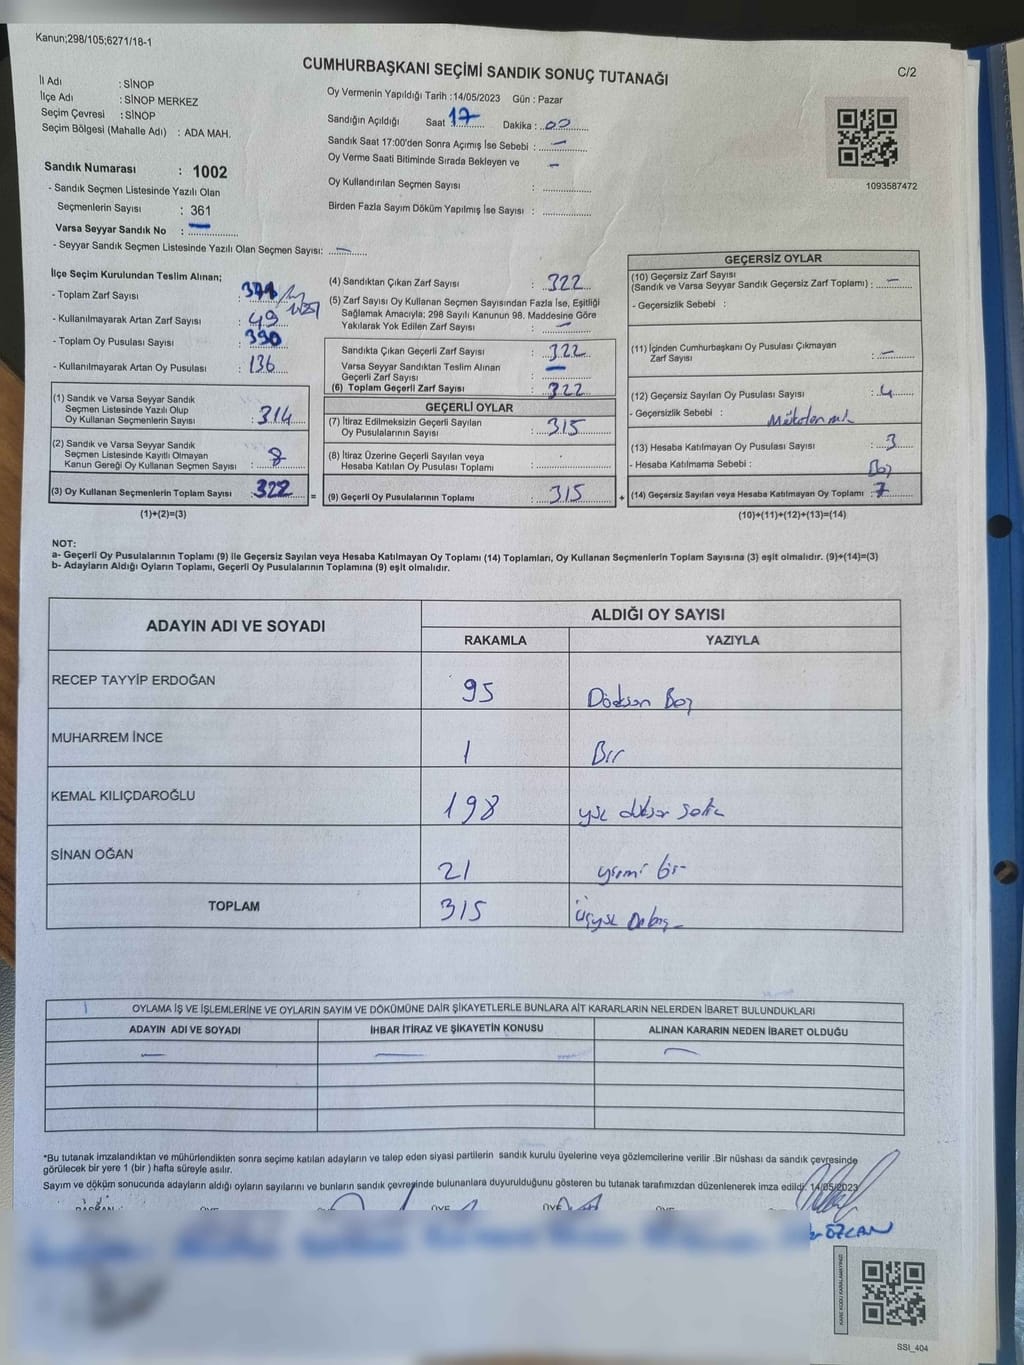 Kanun;298/105;6271/18-1
CUMHURBAŞKANI SEÇİMİ SANDIK SONUÇ TUTANAĞI
C/2
İl Adı : SİNOP
İlçe Adı : SİNOP MERKEZ
Seçim Çevresi : SİNOP
Seçim Bölgesi (Mahalle Adı) : ADA MAH.
Sandık Numarası : 1002
- Sandık Seçmen Listesinde Yazılı Olan
Seçmenlerin Sayısı : 361
Varsa Seyyar Sandık No : —
- Seyyar Sandık Seçmen Listesinde Yazılı Olan Seçmen Sayısı: —
Oy Vermenin Yapıldığı Tarih :14/05/2023 Gün : Pazar
Sandığın Açıldığı Saat 17 Dakika : 00
Sandık Saat 17:00'den Sonra Açımış İse Sebebi : —
Oy Verme Saati Bitiminde Sırada Bekleyen ve —
Oy Kullandırılan Seçmen Sayısı :
Birden Fazla Sayım Döküm Yapılmış İse Sayısı :
1093587472
İlçe Seçim Kurulundan Teslim Alınan;
- Toplam Zarf Sayısı :
- Kullanılmayarak Artan Zarf Sayısı : 49
- Toplam Oy Pusulası Sayısı : 390
- Kullanılmayarak Artan Oy Pusulası : 136
(1) Sandık ve Varsa Seyyar Sandık
Seçmen Listesinde Yazılı Olup
Oy Kullanan Seçmenlerin Sayısı : 314
(2) Sandık ve Varsa Seyyar Sandık
Seçmen Listesinde Kayıtlı Olmayan
Kanun Gereği Oy Kullanan Seçmen Sayısı : 8
(3) Oy Kullanan Seçmenlerin Toplam Sayısı : 322 =
(1)+(2)=(3)
(4) Sandıktan Çıkan Zarf Sayısı : 322
(5) Zarf Sayısı Oy Kullanan Seçmen Sayısından Fazla İse, Eşitliği
Sağlamak Amacıyla; 298 Sayılı Kanunun 98. Maddesine Göre
Yakılarak Yok Edilen Zarf Sayısı : —
Sandıkta Çıkan Geçerli Zarf Sayısı : 322
Varsa Seyyar Sandıktan Teslim Alınan —
Geçerli Zarf Sayısı :
(6) Toplam Geçerli Zarf Sayısı : 322
GEÇERLİ OYLAR
(7) İtiraz Edilmeksizin Geçerli Sayılan
Oy Pusulalarının Sayısı : 315
(8) İtiraz Üzerine Geçerli Sayılan veya
Hesaba Katılan Oy Pusulası Toplamı :
(9) Geçerli Oy Pusulalarının Toplamı : 315 +
GEÇERSİZ OYLAR
(10) Geçersiz Zarf Sayısı
(Sandık ve Varsa Seyyar Sandık Geçersiz Zarf Toplamı) : —
- Geçersizlik Sebebi :
(11) İçinden Cumhurbaşkanı Oy Pusulası Çıkmayan
Zarf Sayısı : —
(12) Geçersiz Sayılan Oy Pusulası Sayısı : 4
- Geçersizlik Sebebi :
(13) Hesaba Katılmayan Oy Pusulası Sayısı : 3
- Hesaba Katılmama Sebebi : Boş
(14) Geçersiz Sayılan veya Hesaba Katılmayan Oy Toplamı : 7
(10)+(11)+(12)+(13)=(14)
NOT:
a- Geçerli Oy Pusulalarının Toplamı (9) ile Geçersiz Sayılan veya Hesaba Katılmayan Oy Toplamı (14) Toplamları, Oy Kullanan Seçmenlerin Toplam Sayısına (3) eşit olmalıdır. (9)+(14)=(3)
b- Adayların Aldığı Oyların Toplamı, Geçerli Oy Pusulalarının Toplamına (9) eşit olmalıdır.
ADAYIN ADI VE SOYADI
ALDIĞI OY SAYISI
RAKAMLA YAZIYLA
RECEP TAYYİP ERDOĞAN 95 Doksan Beş
MUHARREM İNCE 1 Bir
KEMAL KILIÇDAROĞLU 198 yüz doksan sekiz
SİNAN OĞAN 21 yirmi bir
TOPLAM 315 üçyüz Onbeş
OYLAMA İŞ VE İŞLEMLERİNE VE OYLARIN SAYIM VE DÖKÜMÜNE DAİR ŞİKAYETLERLE BUNLARA AİT KARARLARIN NELERDEN İBARET BULUNDUKLARI
ADAYIN ADI VE SOYADI İHBAR İTİRAZ VE ŞİKAYETİN KONUSU ALINAN KARARIN NEDEN İBARET OLDUĞU
— — —
*Bu tutanak imzalandıktan ve mühürlendikten sonra seçime katılan adayların ve talep eden siyasi partilerin sandık kurulu üyelerine veya gözlemcilerine verilir .Bir nüshası da sandık çevresinde
görülecek bir yere 1 (bir ) hafta süreyle asılır.
Sayım ve döküm sonucunda adayların aldığı oyların sayılarını ve bunların sandık çevresinde bulunanlara duyurulduğunu gösteren bu tutanak tarafımızdan düzenlenerek imza edildi. 14/05/2023
BAŞKAN ÜYE ÜYE ÜYE ÜYE
ÖZCAN
KARE KODU KARALAMAYINIZ!
SSI_404